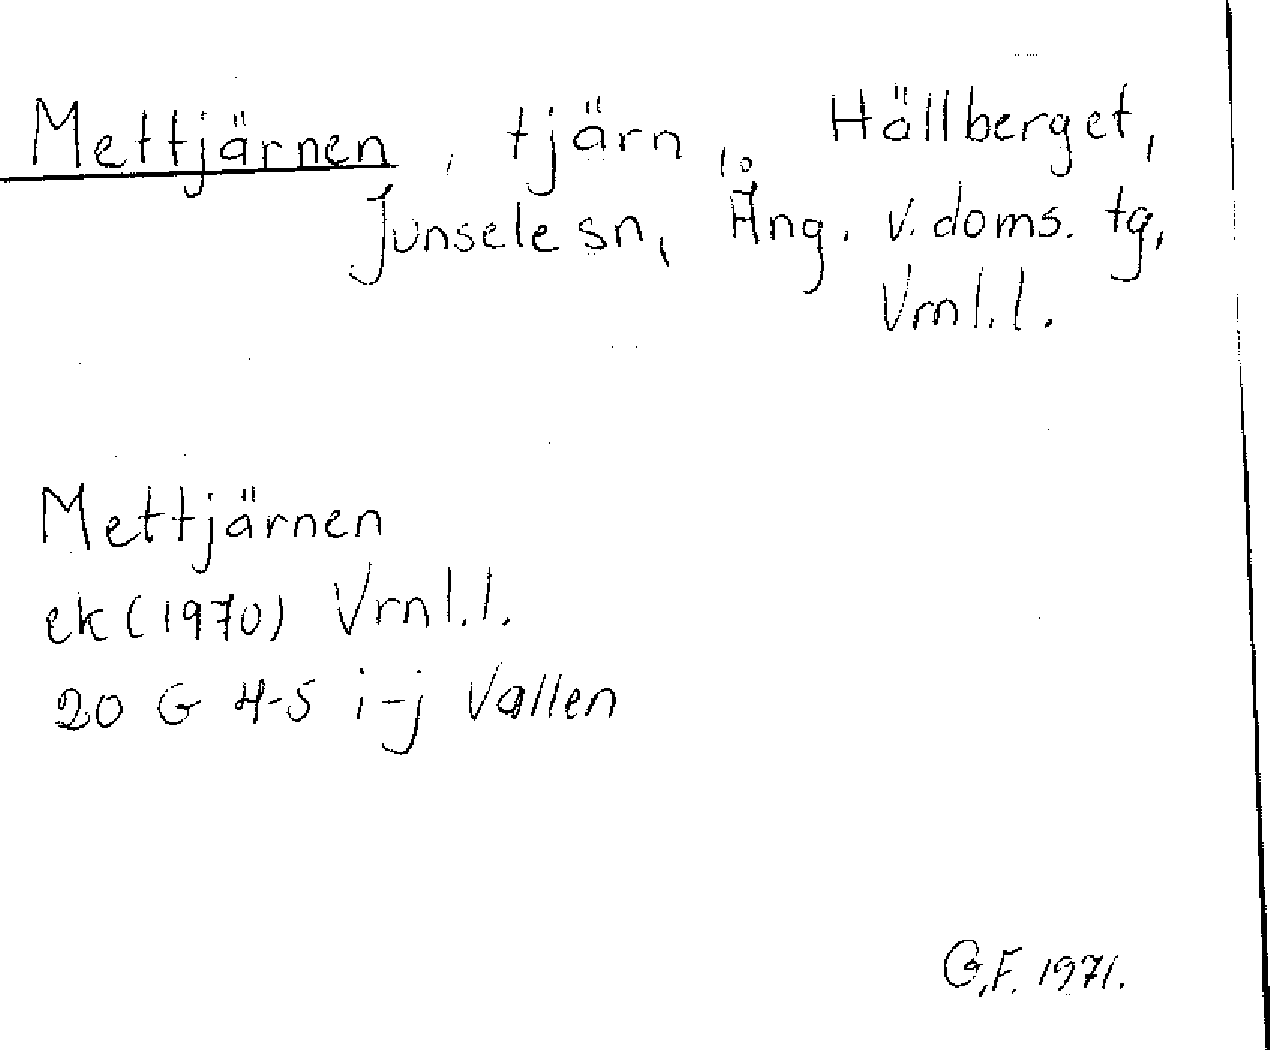 Mettjärnen, tjärn, Hällberget,
Junsele sn, Ång. v. doms. tg,
Vrnl.l.
Mettjärnen
ek (1970) Vrnl.l.
20 G 4-5 i-j Vallen
G.F. 1971.